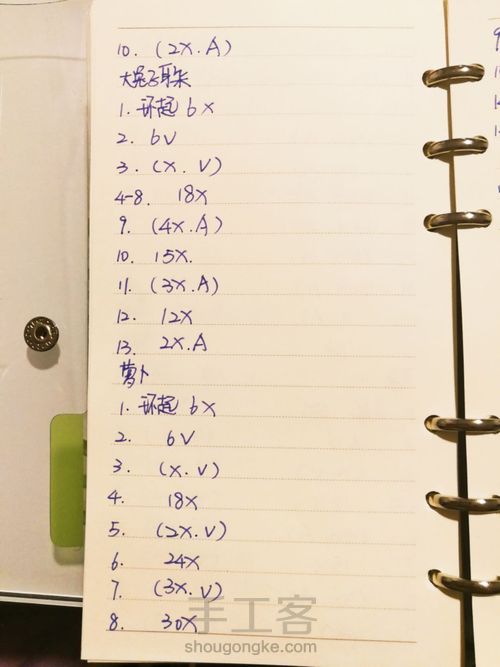 10. (2X.A)
大兔子耳朵
1. 环起 6X
2. 6V
3. (X.V)
4-8. 18X
9. (4X.A)
10. 15X.
11. (3X.A)
12. 12X
13. 2X.A
萝卜
1. 环起 6X
2. 6V
3. (X.V)
4. 18X
5. (2X.V)
6. 24X
7. (3X.V)
8. 30X
手工客
shougongke.com